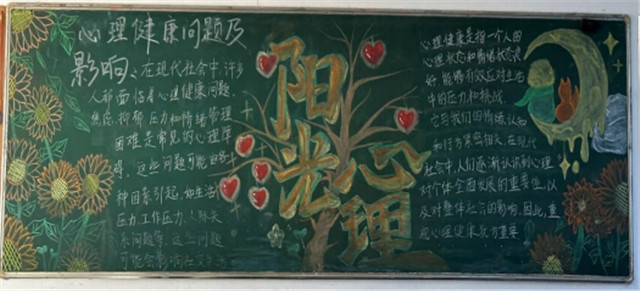 心理健康问题及
影响：在现代社会中，许多
人都面临着心理健康问题，
焦虑 抑郁 压力和情绪管理
困难是常见的心理障
碍，这些问题可能由多
种因素引起，如生活
压力、工作压力、人际关
系问题等，这些问题
可能会影响
阳光心理
心理健康是指一个人的
心理状态和情绪状态良
好 能够有效应对生活
中的压力和挑战
它与我们的情绪、认知
和行为紧密相关，在现代
社会中，人们逐渐认识到心理
对个体全面发展的重要性，以
及对整体社会的影响，因此，重
视心理健康众为重要